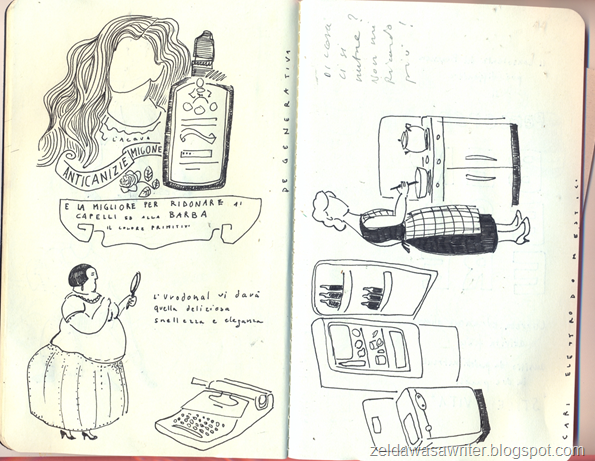 L'ACQUA
ANTICANIZIE MIGONE
E LA MIGLIORE PER RIDONARE AI
CAPELLI ED ALLA BARBA
IL COLORE PRIMITIVI
L'Urodonal vi darà
quella deliziosa
snellezza e eleganza
DEGENERATIVA
Di cosa
ci si
nutre?
Non mi
ricordo
più!
CARI ELETTRODOMESTICI
zeldawasawriter.blogspot.com